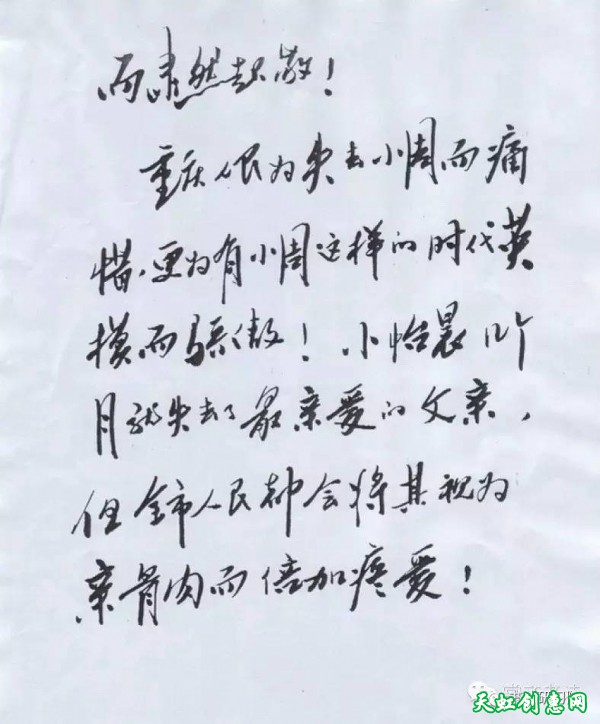 而肃然起敬！
重庆人民为失去小周而痛
惜，更为有小周这样的时代英
模而骄傲！小怡晨12个
月就失去了最亲爱的父亲，
但全市人民都会将其视为
亲骨肉而倍加疼爱！
天虹创意网